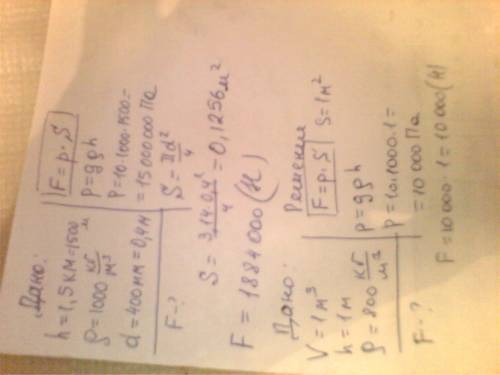 Дано:
h=1,5 км=1500 м
ρ=1000 кг/м³
d=400мм=0,4м
F-?
F=p·S
p=gρh
p=10·1000·1500=
=15000000 Па
S=πd²/4
S=3,14·0,4²/4=0,1256м²
F=1884000 (Н)
Дано:
V=1м³
h=1м
ρ=800 кг/м³
F-?
Решение
F=p·S S=1м²
p=gρh
p=10·1000·1=
=10000 Па
F=10000·1=10000(Н)